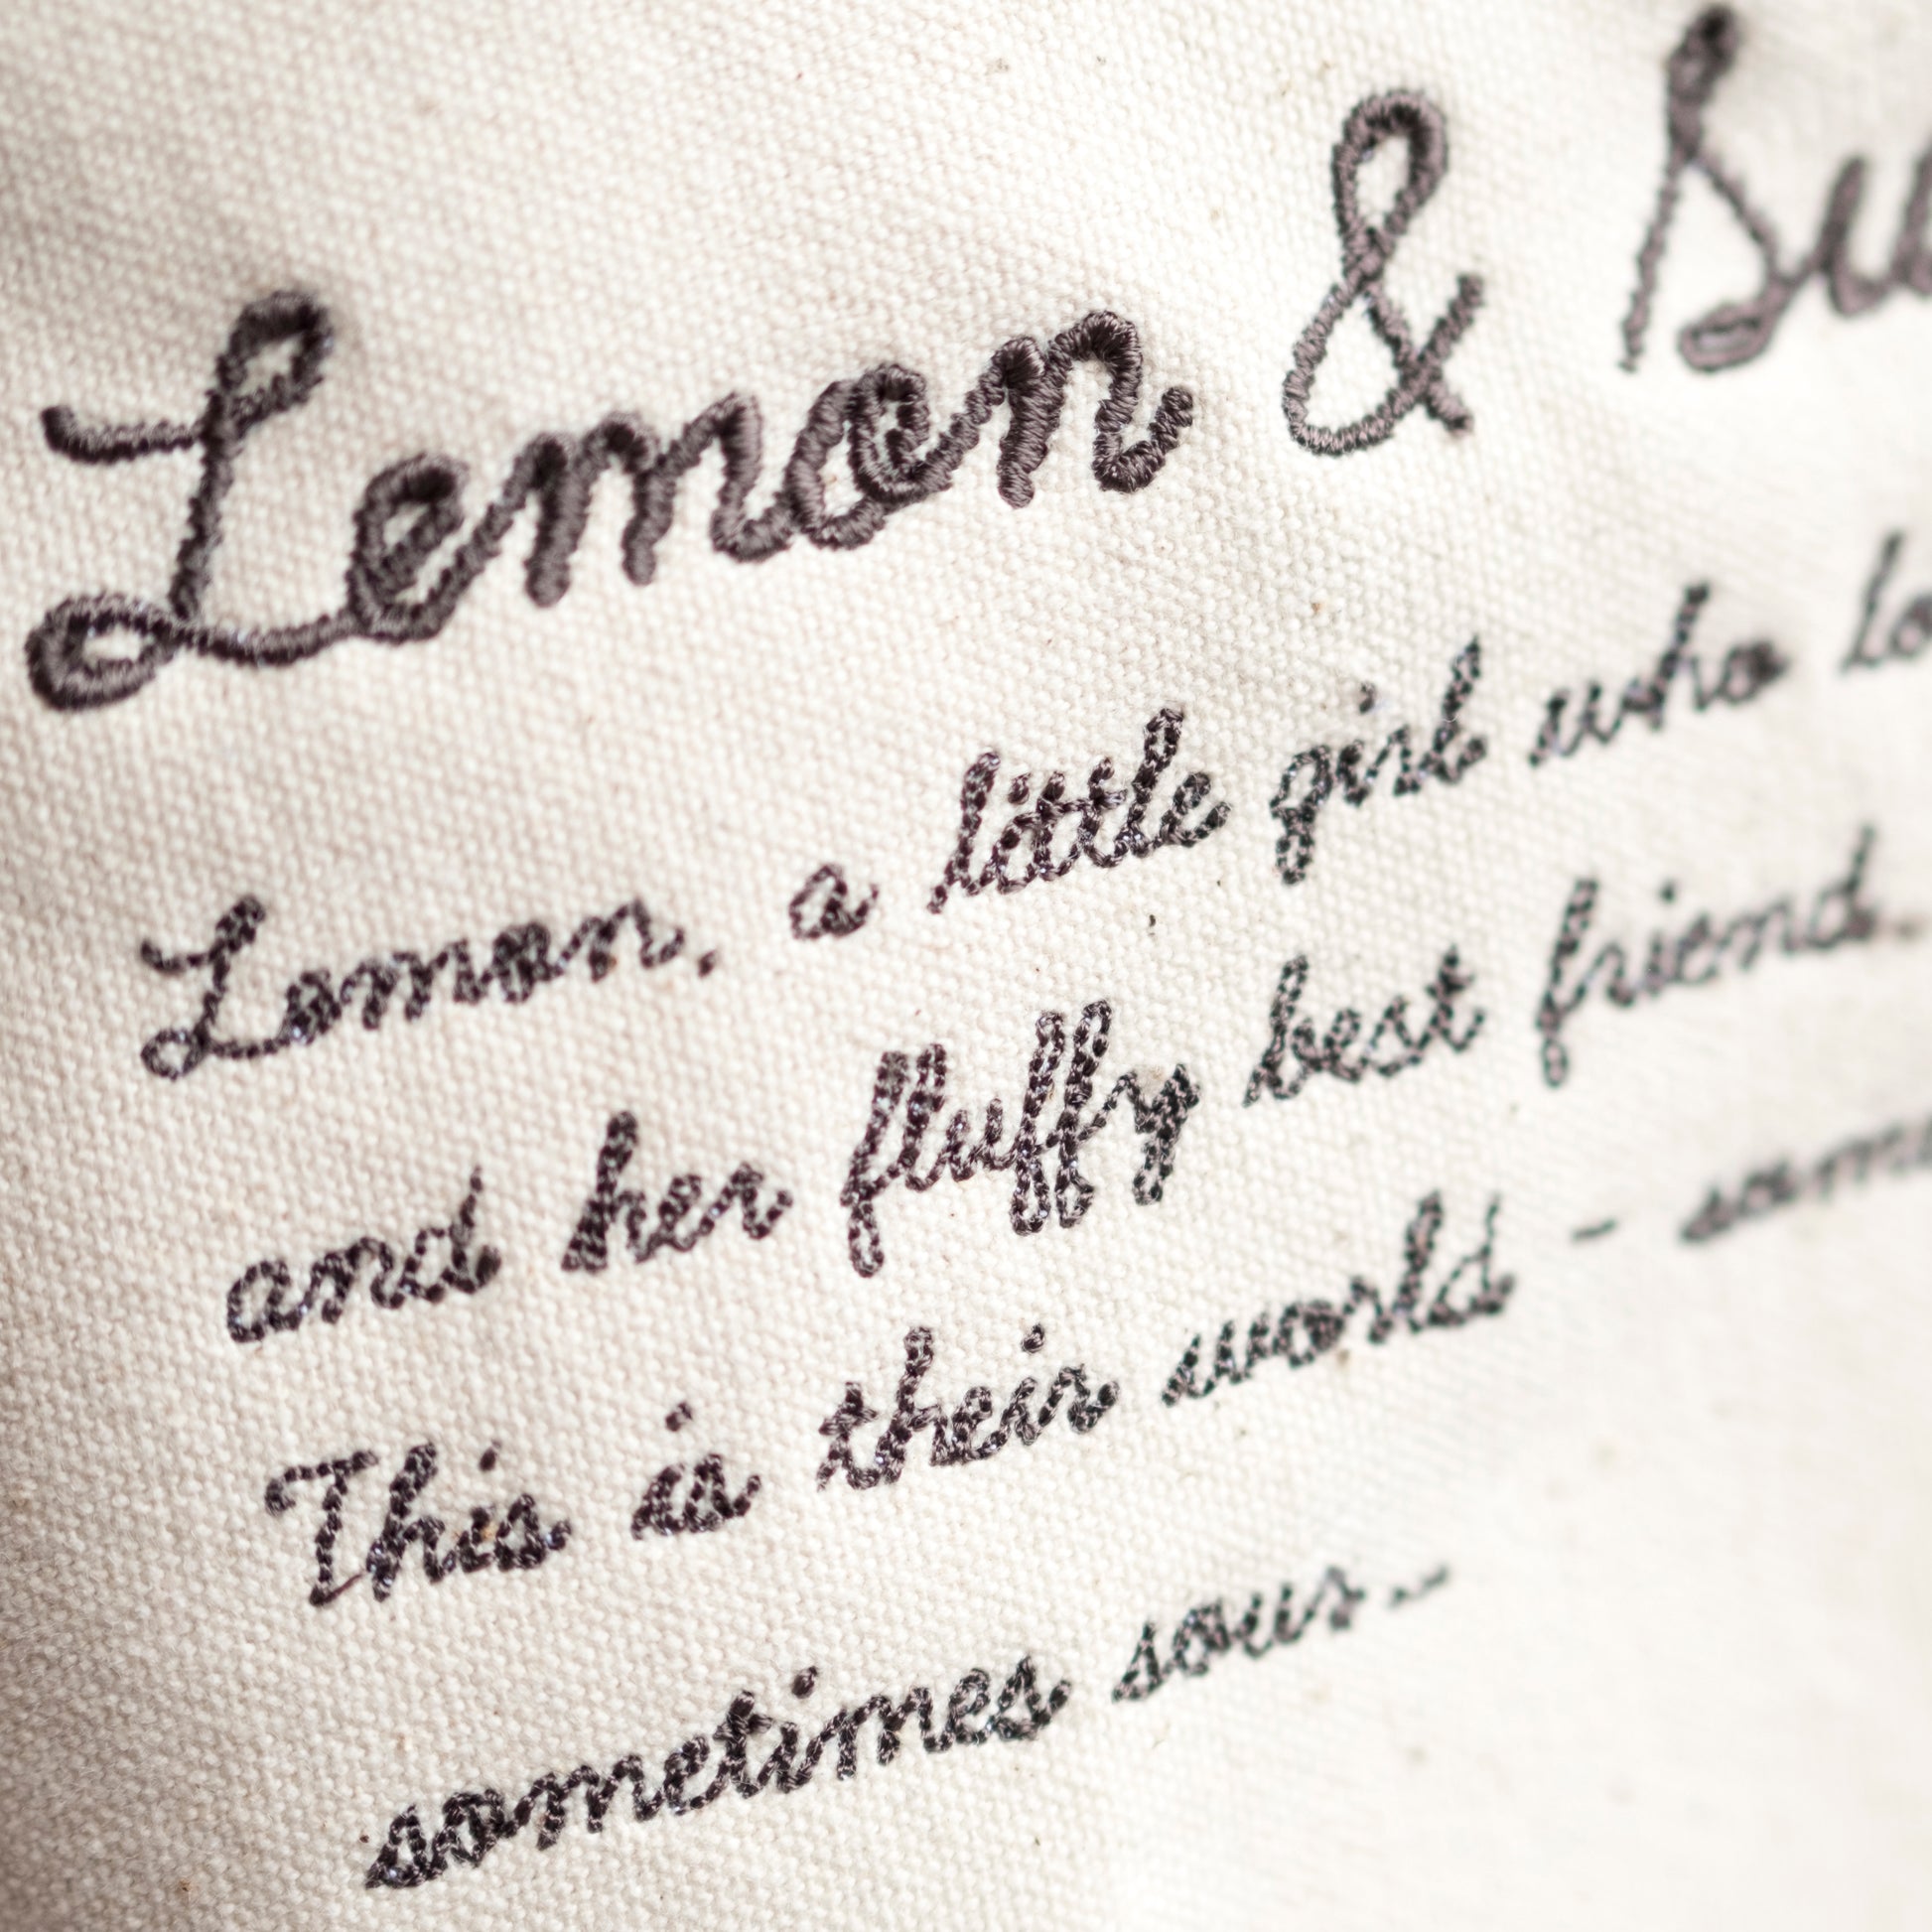 Lemon &
Lemon, a little girl who
and her fluffy best friend.
This is their world -
sometimes sour..